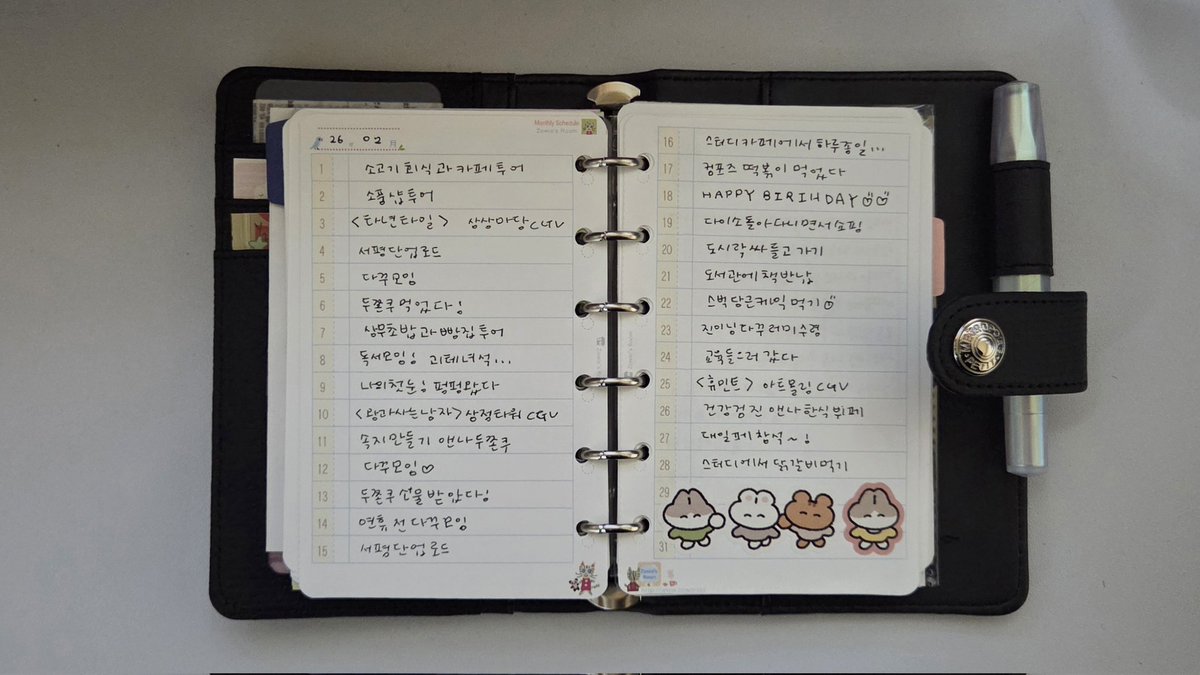 Monthly Schedule
26. 02 月
1 소고기 회식과 카페 투어
2 소품샵투어
3 <타년타일> 상상마당 CGV
4 서평단업로드
5 다꾸모임
6 두쫀쿠 먹었다!
7 상무초밥과 빵집 투어
8 독서모임! 괴테녀석...
9 나의 첫눈! 펑펑왔다
10 <왕과사는남자> 상점타워 CGV
11 속지만들기 앤나 두쫀쿠
12 다꾸모임♡
13 두쫀쿠 선물 받았다!
14 연휴 전 다꾸모임
15 서평단업로드
16 스터디카페에서 하루종일...
17 컴포즈 떡볶이 먹었다
18 HAPPY BIRTHDAY
19 다이소돌아다니면서쇼핑
20 도시락 싸들고 가기
21 도서관에 책 반납
22 스벅당근케익 먹기
23 진이닝다꾸꾸러미수령
24 교육들으러 갔다
25 <휴민트> 아트몰링 CGV
26 건강검진 앤나 한식뷔페
27 대일페 참석~!
28 스터디에서 닭갈비먹기
29
31